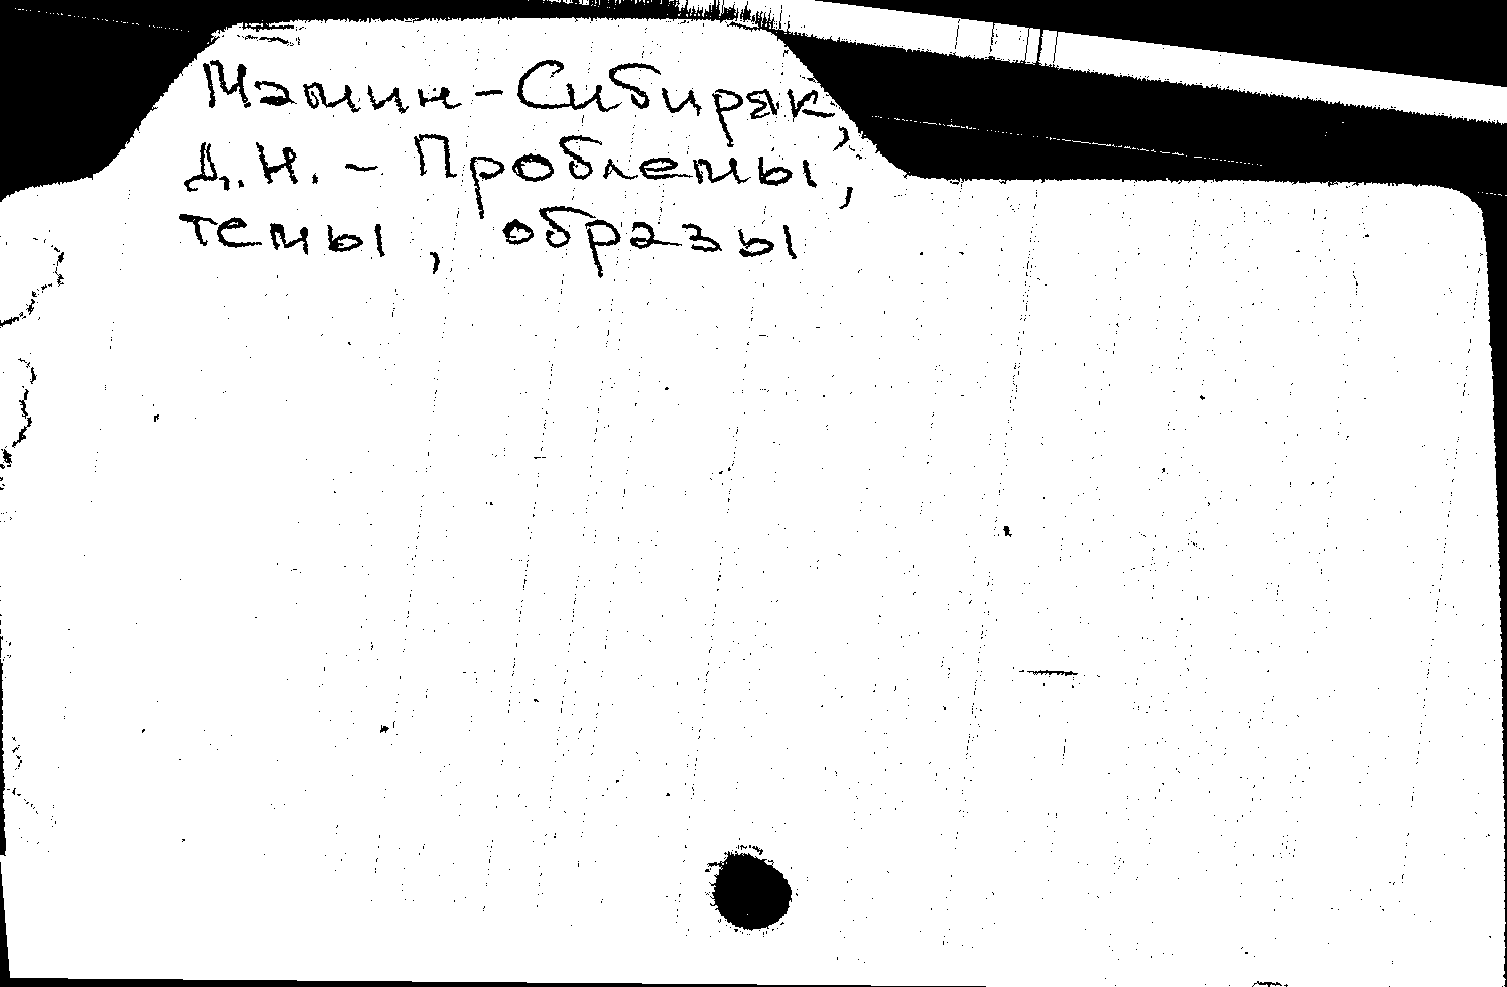 Мамин-Сибиряк,
Д.Н. - Проблемы,
темы, образы